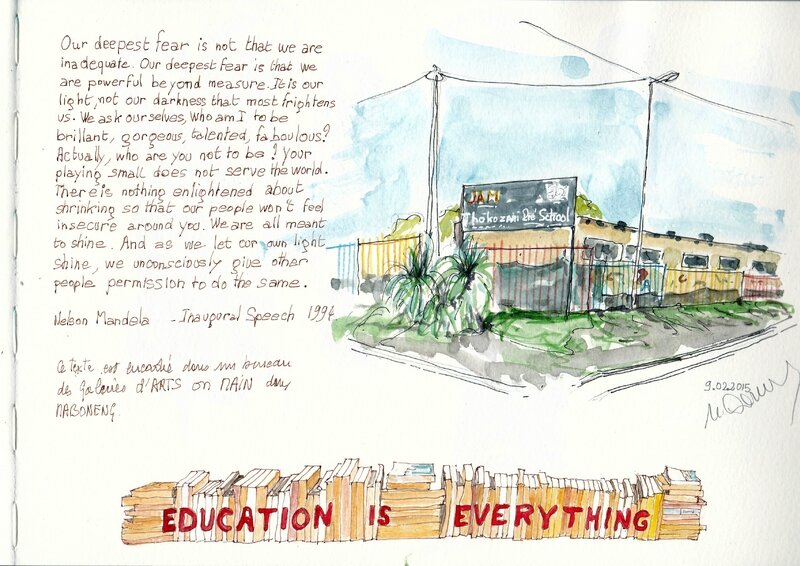 Our deepest fear is not that we are
inadequate. Our deepest fear is that we
are powerful beyond measure. It is our
light, not our darkness that most frightens
us. We ask ourselves, who am I to be
brillant, gorgeous, talented, faboulous?
Actually, who are you not to be? Your
playing small does not serve the world.
There is nothing enlightened about
shrinking so that our people won't feel
insecure around you. We are all meant
to shine. And as we let our own light
shine, we unconsciously give other
people permission to do the same.
Nelson Mandela - Inaugural Speech 1994
Ce texte est encadré dans un bureau
des galeries d'ARTS on MAIN dans
MABONENG.
JAM
Thokozani Pré School
9.02.2015
EDUCATION IS EVERYTHING